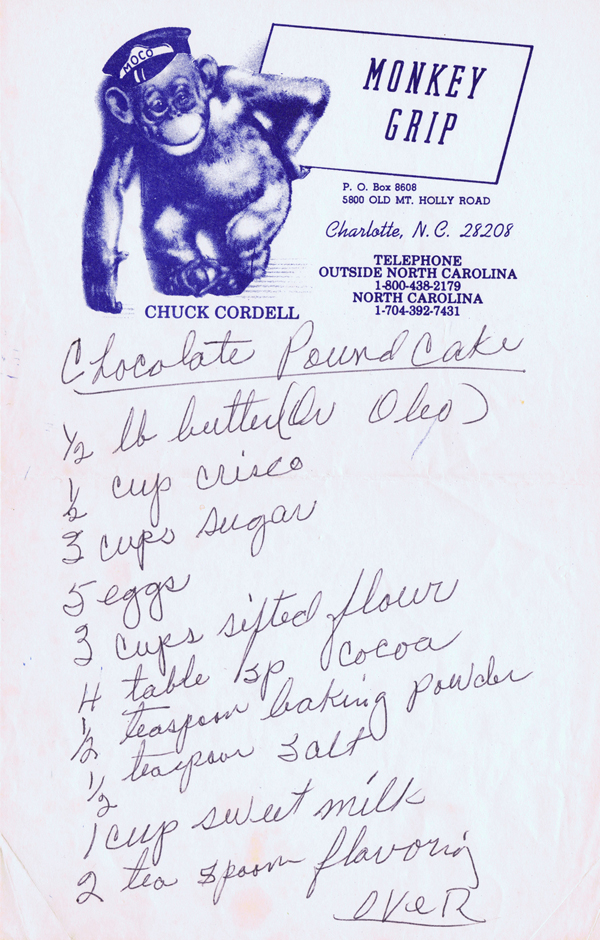 MOCO
MONKEY
GRIP
P. O. Box 8608
5800 OLD MT. HOLLY ROAD
Charlotte, N.C. 28208
TELEPHONE
OUTSIDE NORTH CAROLINA
1-800-438-2179
NORTH CAROLINA
1-704-392-7431
CHUCK CORDELL
Chocolate Pound Cake
1/2 lb butter (Or Oleo)
1/2 cup crisco
3 cups sugar
5 eggs
3 cups sifted flour
4 table sp cocoa
1/2 teaspoon baking powder
1/2 teaspoon salt
1 cup sweet milk
2 tea spoon flavoring
OVER